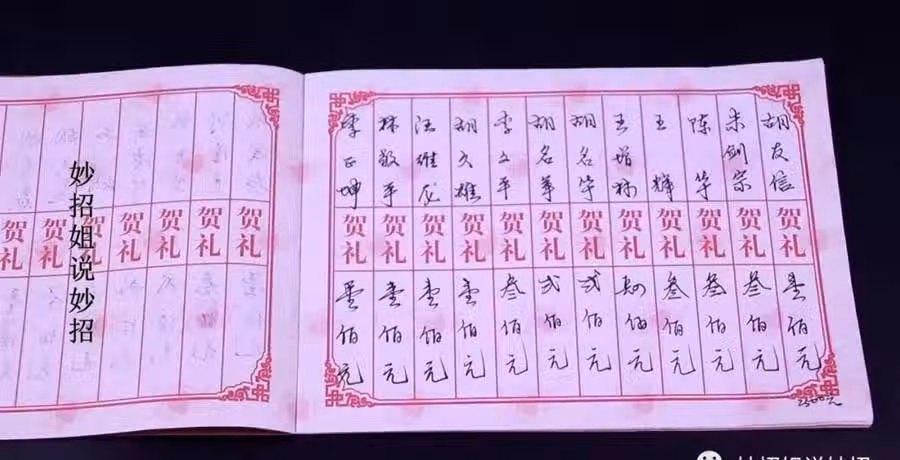 胡友信 贺礼 壹佰元
朱剑宗 贺礼 叁佰元
陈华 贺礼 叁佰元
王辉 贺礼 叁佰元
王增林 贺礼 肆佰元
胡名华 贺礼 弍佰元
胡名 贺礼 弍佰元
李文平 贺礼 叁佰元
胡文雄 贺礼 壹佰元
汪维龙 贺礼 壹佰元
林敬平 贺礼 壹佰元
李正坤 贺礼 壹佰元
2500元
贺礼
贺礼
贺礼
贺礼
贺礼
贺礼
贺礼
妙招姐说妙招